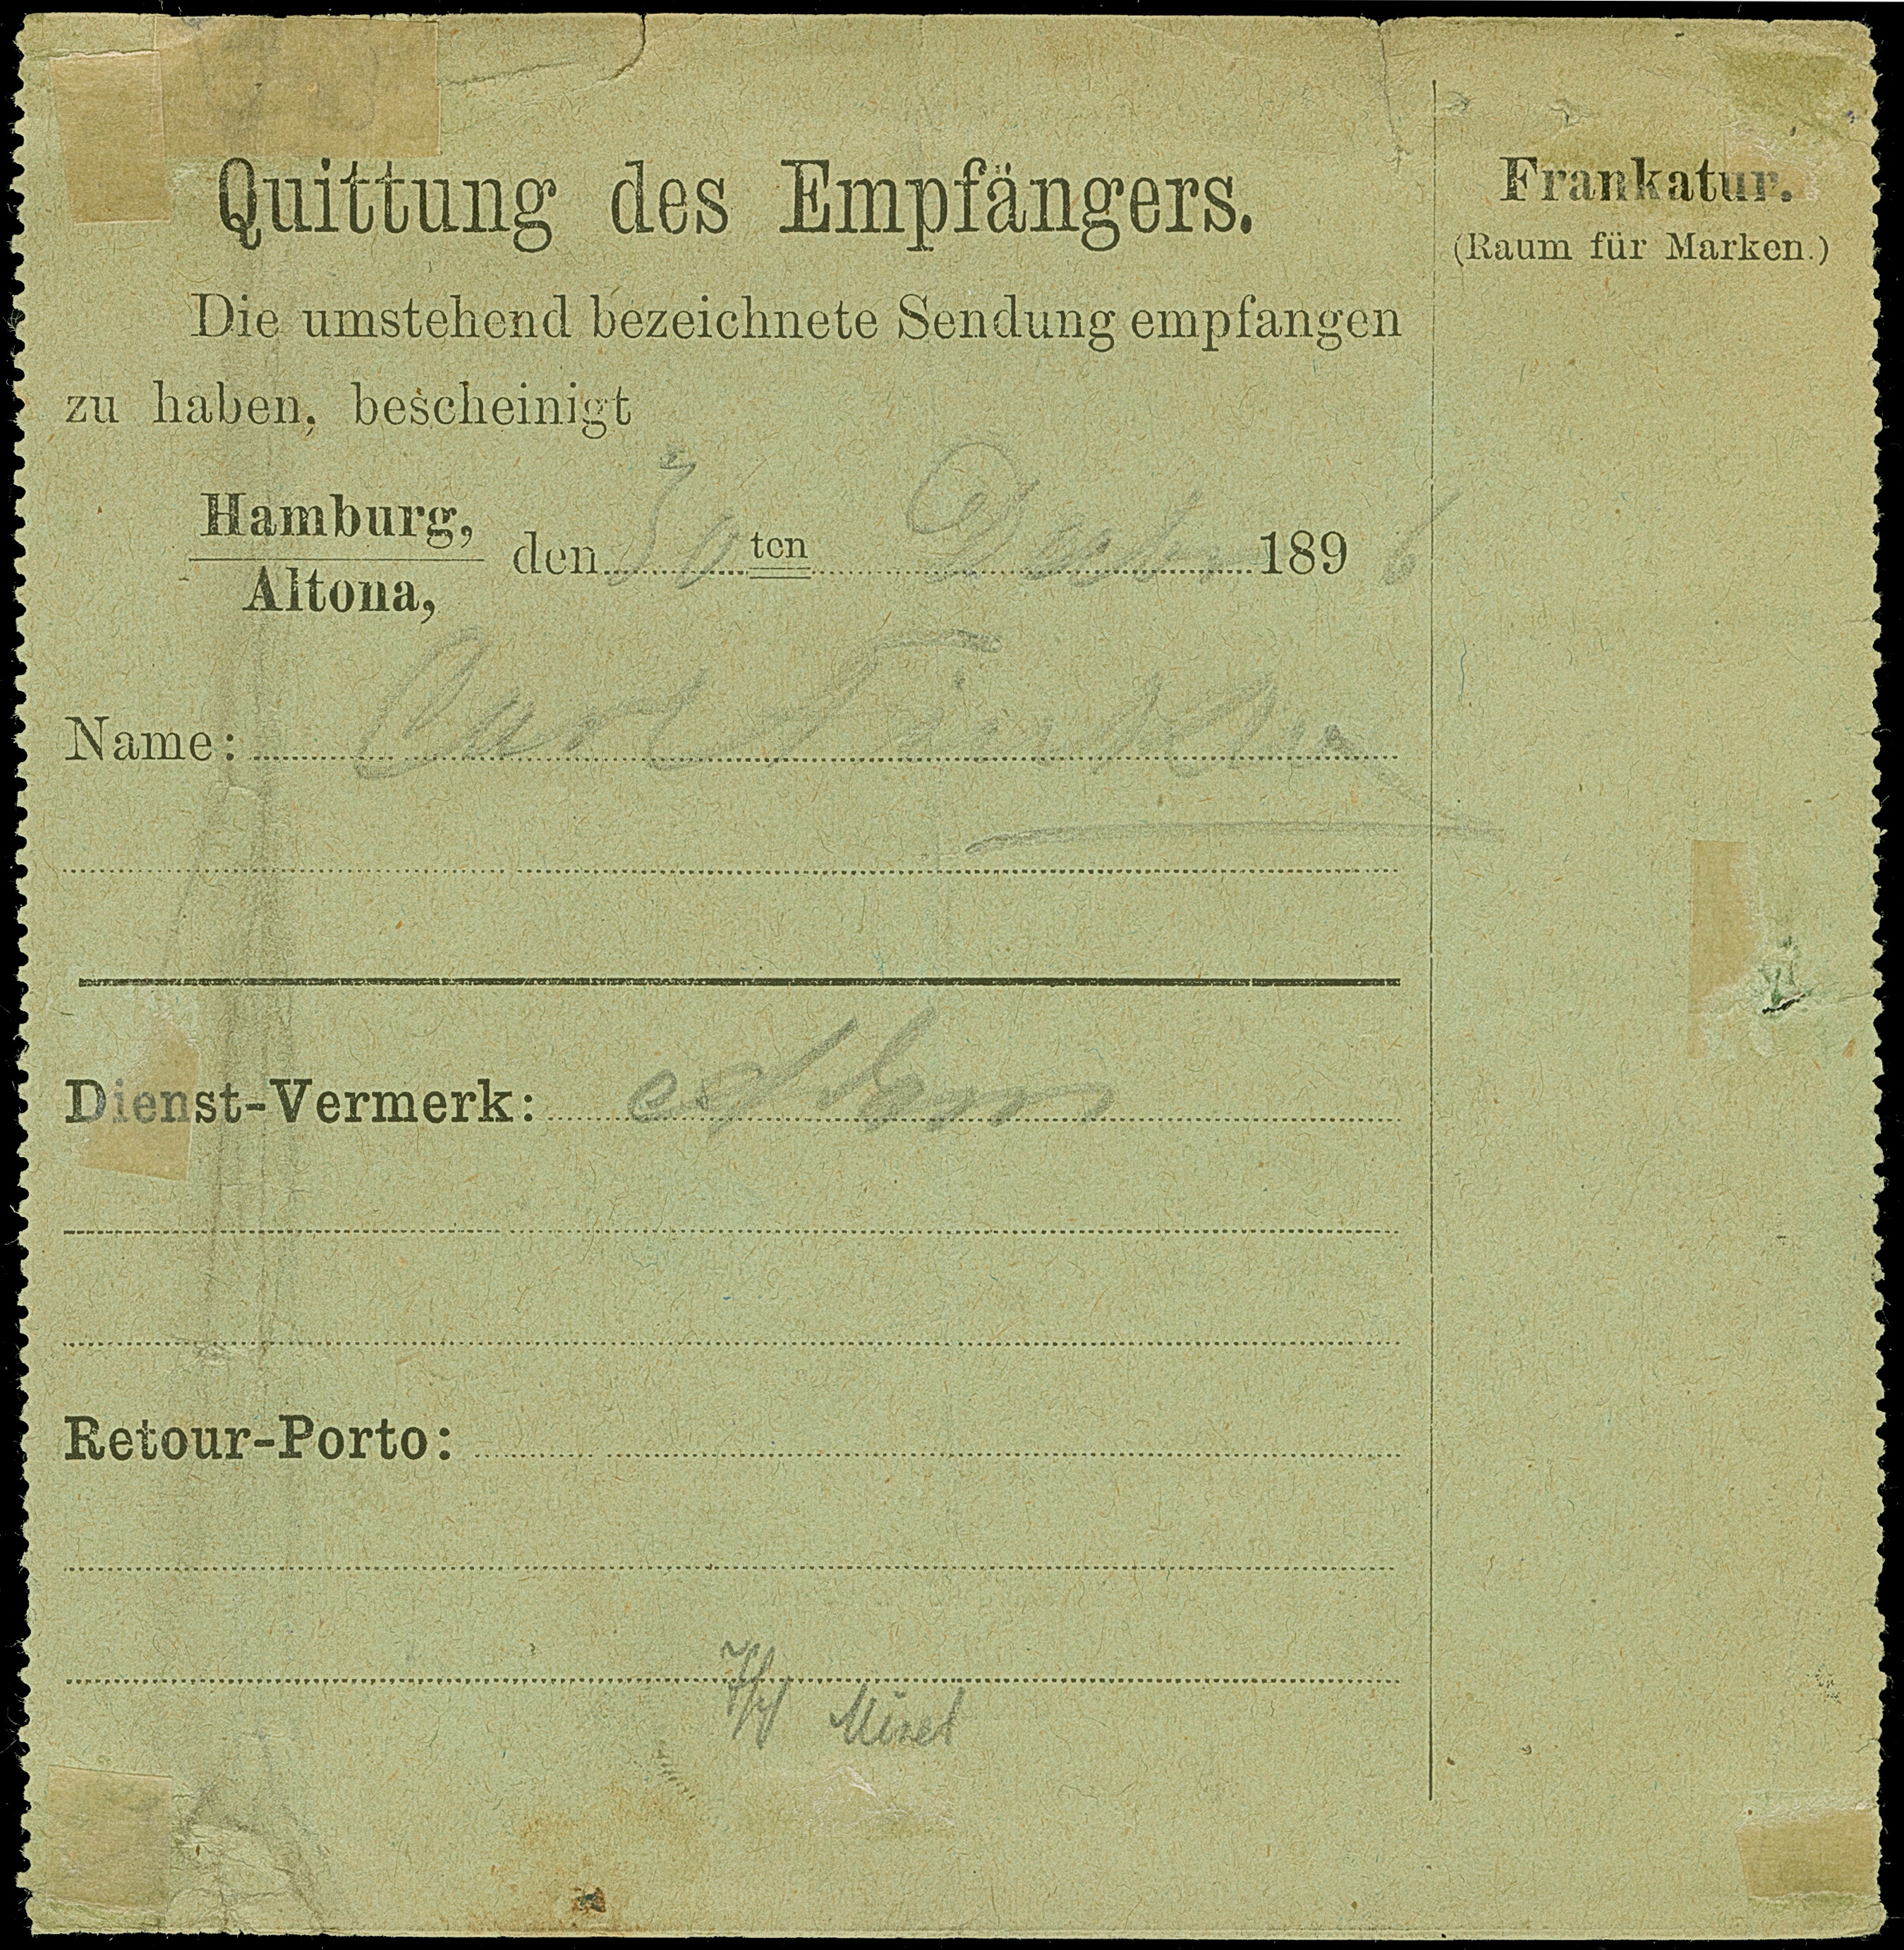 Quittung des Empfängers.
Die umstehend bezeichnete Sendung empfangen
zu haben, bescheinigt
Hamburg,
Altona,
den 30 ten Decbr 1896
Name: Carl
Dienst-Vermerk:
Retour-Porto:
Frankatur.
(Raum für Marken.)